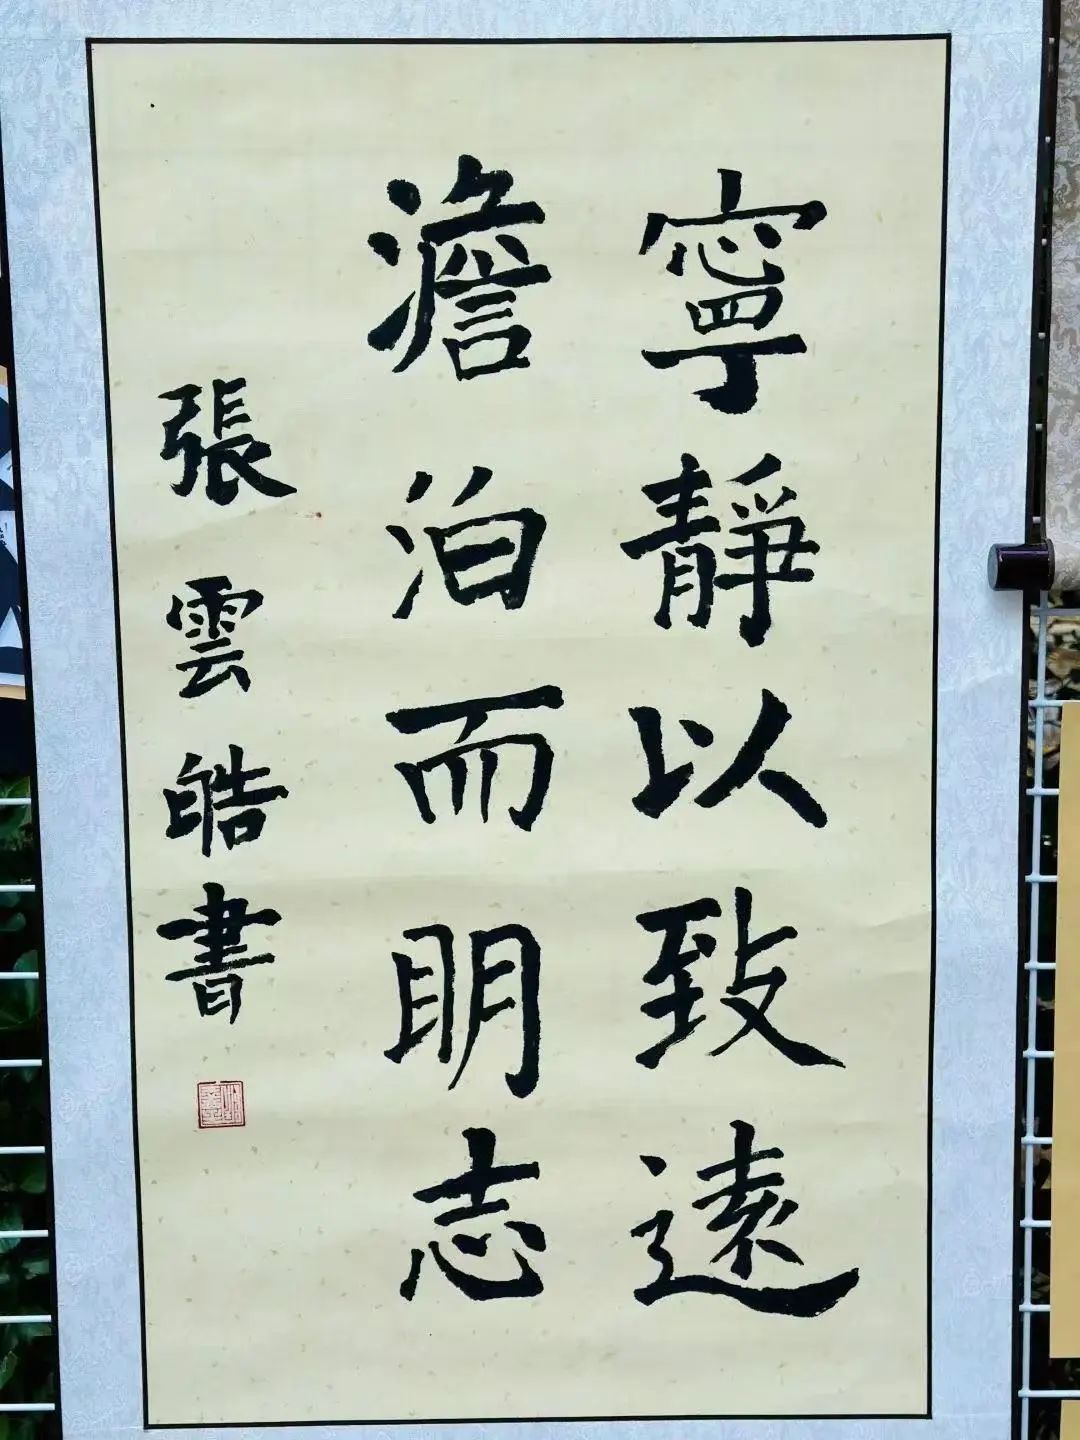 寧靜以致遠
澹泊而明志
張雲皓書